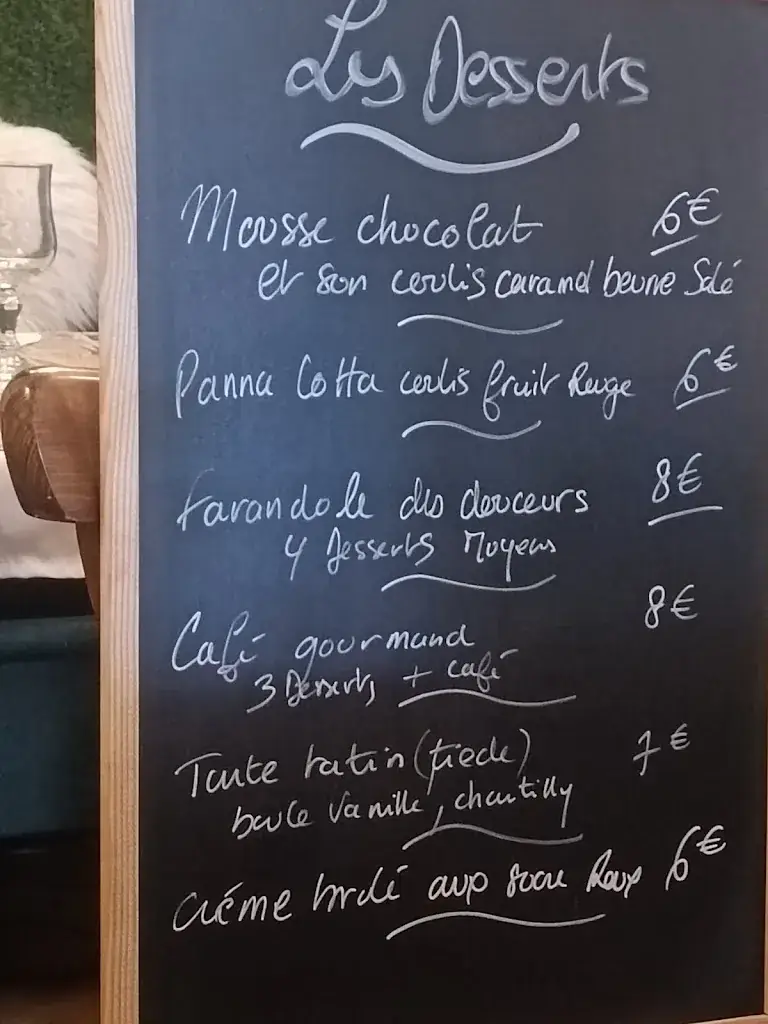 Les Desserts
Mousse chocolat 6€
et son coulis caramel beurre Salé
Panna Cotta coulis fruit Rouge 6€
Farandole des douceurs 8€
4 Desserts Moyens
Café gourmand 8€
3 Desserts + café
Tarte tatin (tiède) 7€
boule Vanille, chantilly
Crème brulé au sucre Roux 6€